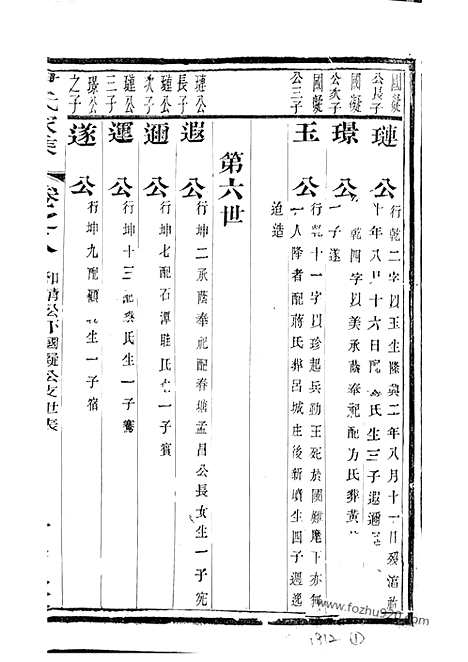 國凝公長子
璉公
行乾二字以玉生隆興二年八月十一日
年八月十六日配 氏生三子遐邇
國凝公次子
璟公
行乾四字以美承蔭奉祀配方氏葬黃
一子遂
國凝公三子
玉公
行 十一字以珍起兵勤王死於國難麾下亦
人降者配蔣氏葬呂城庄後新墳生四子 逸
迨造
第六世
璉公長子
遐公
行坤二承蔭奉祀配春 孟昌公長女生一子宪
璉公次子
邇公
行坤七配石潭 氏生一子賓
璉公三子
運公
行坤十三配 氏生一子騫
璟公之子
遂公
行坤九配顧氏生一子宿
氏家集
國凝公支世表
www.fozhu920.com
1912 ①